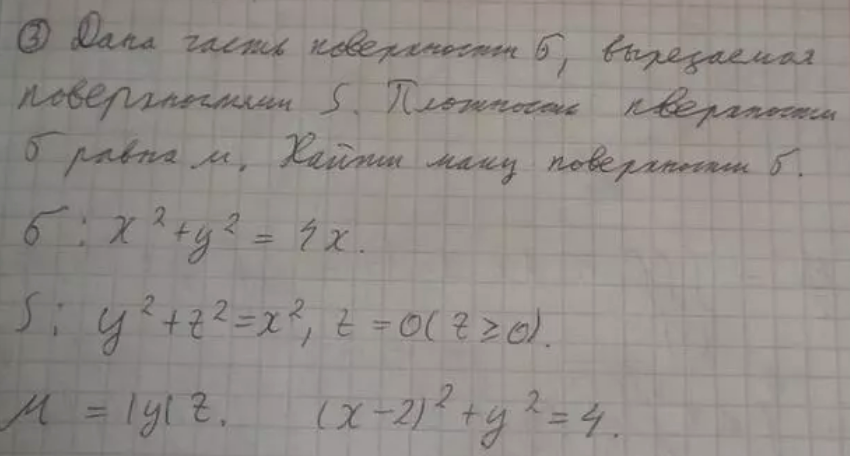 ③ Дана часть поверхности б, вырезаемая
поверхностями S. Плотность пверхности
б равна м. Найти массу поверхности б.
б: x² + y² = 4x.
S: y² + z² = x², z = 0 (z ≥ 0).
М = |y| z. (x – 2)² + y² = 4.